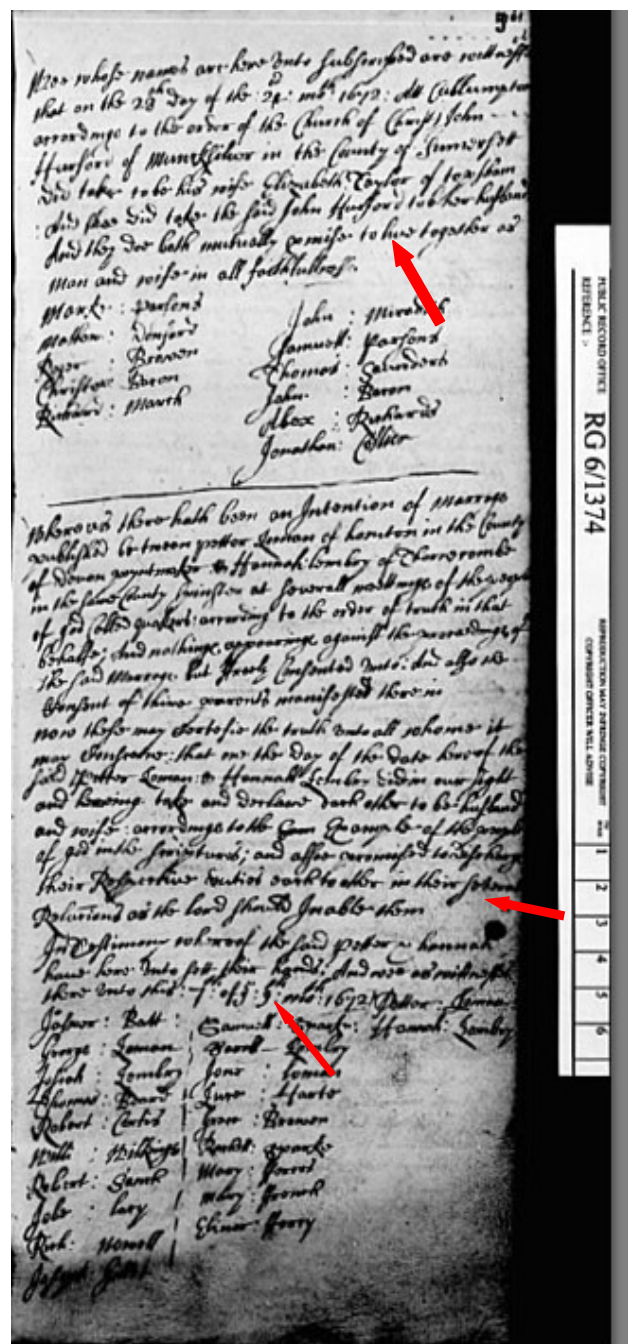 Wee whose names are here unto subscribed are wittnesses
that on the 28th day of the 2d: mth 1672: Att Cullumpton
accordinge to the order of the Church of Christ John
Harford of in the County of Sumersett
did take to be his wife Elizabeth Taylor of topsham
And shee did take the said John Harford to be her husband
And they doe both mutually promise to live together as
man and wife in all faithfullness.
Marke: parsons
Roger: Brewen
Christow: Bacon
Richard: March
John: 
Samuell: parsons
Thomas: Saunders
John: Bacon
Alex: Richards
Jonathan: Collier
Whereas there hath been an Intention of Marrage
published between petter Leman of honiton in the County
of devon & Hannah: lembry of
in the same County spinster at severall meettings of the people
of god Called quakers: according to the order of truth in that
behalfe; And nothinge appearinge against the proceedings of
the said Marrage but freely Consented unto: And also the
Consent of parents manifested there in
now these may Certefie the truth unto all whome it
may Conserne: that one the day of the date hereof the
said Petter Leman: & Hannah Lembry did in our sight
and heering take and declare Each other to be husband
and wife: accordinge to the Example of the people
of god in the scriptures; and allsoe promised to discharge
their Respective duties each to other in their severall
Relations as the lord should Inable them
In Testimony whereof the said petter & hannah
have here unto sett their hands: And wee as wittnesses
there unto this: of: 5: mth: 1672 Petter: Leman
Batt: Samuell: Sparke: Hannah: Lembry
George: Leman Lembry
Josiah: Lembry Jone: Leman
Thomas: Beard Harte
Robert: Curtis Brewen
Will: Wilkings Sparke
Robert: Mary:
Jobe: Lacy Mary: French
Rich: Nowell Elinor: Perry
Joseph
PUBLIC RECORD OFFICE
REFERENCE :-
RG 6/1374
REPRODUCTION MAY INFRINGE COPYRIGHT
COPYRIGHT OFFICER WILL ADVISE
1 2 3 4 5 6